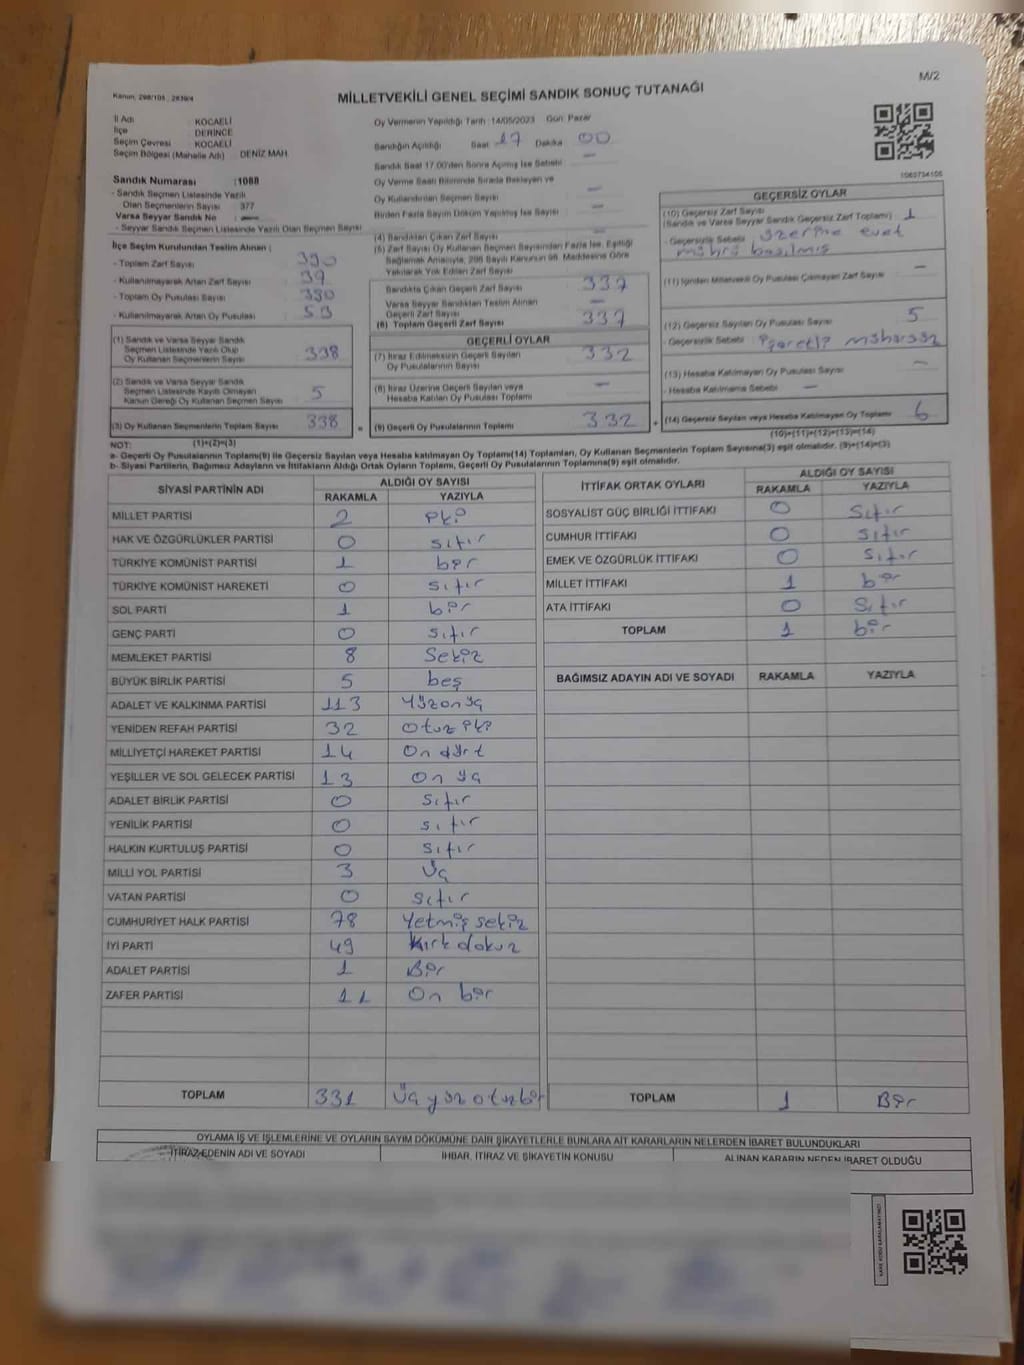 M/2
Kanun: 298/105 ; 2839/4
MİLLETVEKİLİ GENEL SEÇİMİ SANDIK SONUÇ TUTANAĞI
İl Adı : KOCAELİ
İlçe : DERİNCE
Seçim Çevresi : KOCAELİ
Seçim Bölgesi (Mahalle Adı) : DENİZ MAH.
Oy Vermenin Yapıldığı Tarih :14/05/2023 Gün: Pazar
Sandığın Açıldığı Saat 17 Dakika 00
Sandık Saat 17.00'den Sonra Açılmış İse Sebebi —
Oy Verme Saati Bitiminde Sırada Bekleyen ve
Oy Kullandırılan Seçmen Sayısı —
Birden Fazla Sayım Döküm Yapılmış İse Sayısı —
1060734106
Sandık Numarası :1088
- Sandık Seçmen Listesinde Yazılı
Olan Seçmenlerin Sayısı : 377
Varsa Seyyar Sandık No : —
- Seyyar Sandık Seçmen Listesinde Yazılı Olan Seçmen Sayısı
İlçe Seçim Kurulundan Teslim Alınan ;
- Toplam Zarf Sayısı 390
- Kullanılmayarak Artan Zarf Sayısı
- Toplam Oy Pusulası Sayısı
- Kullanılmayarak Artan Oy Pusulası 53
(1) Sandık ve Varsa Seyyar Sandık
Seçmen Listesinde Yazılı Olup
Oy Kullanan Seçmenlerin Sayısı 338
(2) Sandık ve Varsa Seyyar Sandık
Seçmen Listesinde Kayıtlı Olmayan
Kanun Gereği Oy Kullanan Seçmen Sayısı 5
(3) Oy Kullanan Seçmenlerin Toplam Sayısı 338
(4) Sandıktan Çıkan Zarf Sayısı —
(5) Zarf Sayısı Oy Kullanan Seçmen Sayısından Fazla İse, Eşitliği
Sağlamak Amacıyla, 298 Sayılı Kanunun 98. Maddesine Göre
Yakılarak Yok Edilen Zarf Sayısı
Sandıkta Çıkan Geçerli Zarf Sayısı 337
Varsa Seyyar Sandıktan Teslim Alınan
Geçerli Zarf Sayısı —
(6) Toplam Geçerli Zarf Sayısı 337
GEÇERLİ OYLAR
(7) İtiraz Edilmeksizin Geçerli Sayılan
Oy Pusulalarının Sayısı 332
(8) İtiraz Üzerine Geçerli Sayılan veya
Hesaba Katılan Oy Pusulası Toplamı —
= (9) Geçerli Oy Pusulalarının Toplamı 332
GEÇERSİZ OYLAR
(10) Geçersiz Zarf Sayısı
(Sandık ve Varsa Seyyar Sandık Geçersiz Zarf Toplamı) 1
- Geçersizlik Sebebi üzerine evet
mührü basılmış
(11) İçinden Milletvekili Oy Pusulası Çıkmayan Zarf Sayısı —
(12) Geçersiz Sayılan Oy Pusulası Sayısı 5
- Geçersizlik Sebebi işaretli mühürsüz
(13) Hesaba Katılmayan Oy Pusulası Sayısı —
- Hesaba Katılmama Sebebi —
+ (14) Geçersiz Sayılan veya Hesaba Katılmayan Oy Toplamı 6
NOT: (1)+(2)=(3)
(10)+(11)+(12)+(13)=(14)
a- Geçerli Oy Pusulalarının Toplamı(9) ile Geçersiz Sayılan veya Hesaba katılmayan Oy Toplamı(14) Toplamları, Oy Kullanan Seçmenlerin Toplam Sayısına(3) eşit olmalıdır. (9)+(14)=(3)
b- Siyasi Partilerin, Bağımsız Adayların ve İttifakların Aldığı Ortak Oyların Toplamı, Geçerli Oy Pusulalarının Toplamına(9) eşit olmalıdır.
SİYASİ PARTİNİN ADI ALDIĞI OY SAYISI
RAKAMLA YAZIYLA
MİLLET PARTİSİ 2 iki
HAK VE ÖZGÜRLÜKLER PARTİSİ 0 sıfır
TÜRKİYE KOMÜNİST PARTİSİ 1 bir
TÜRKİYE KOMÜNİST HAREKETİ 0 sıfır
SOL PARTİ 1 bir
GENÇ PARTİ 0 sıfır
MEMLEKET PARTİSİ 8 Sekiz
BÜYÜK BİRLİK PARTİSİ 5 beş
ADALET VE KALKINMA PARTİSİ 113 Yüzonüç
YENİDEN REFAH PARTİSİ 32 Otuz iki
MİLLİYETÇİ HAREKET PARTİSİ 14 On dört
YEŞİLLER VE SOL GELECEK PARTİSİ 13 On üç
ADALET BİRLİK PARTİSİ 0 sıfır
YENİLİK PARTİSİ 0 sıfır
HALKIN KURTULUŞ PARTİSİ 0 sıfır
MİLLİ YOL PARTİSİ 3 Üç
VATAN PARTİSİ 0 sıfır
CUMHURİYET HALK PARTİSİ 78 Yetmiş sekiz
İYİ PARTİ 49 Kırk dokuz
ADALET PARTİSİ 1 Bir
ZAFER PARTİSİ 11 On bir
TOPLAM 331 Üç yüz otuzbir
İTTİFAK ORTAK OYLARI ALDIĞI OY SAYISI
RAKAMLA YAZIYLA
SOSYALİST GÜÇ BİRLİĞİ İTTİFAKI 0 Sıfır
CUMHUR İTTİFAKI 0 sıfır
EMEK VE ÖZGÜRLÜK İTTİFAKI 0 sıfır
MİLLET İTTİFAKI 1 bir
ATA İTTİFAKI 0 Sıfır
TOPLAM 1 bir
BAĞIMSIZ ADAYIN ADI VE SOYADI RAKAMLA YAZIYLA
TOPLAM 1 Bir
OYLAMA İŞ VE İŞLEMLERİNE VE OYLARIN SAYIM DÖKÜMÜNE DAİR ŞİKAYETLERLE BUNLARA AİT KARARLARIN NELERDEN İBARET BULUNDUKLARI
İTİRAZ EDENİN ADI VE SOYADI İHBAR, İTİRAZ VE ŞİKAYETİN KONUSU ALINAN KARARIN NEDEN İBARET OLDUĞU